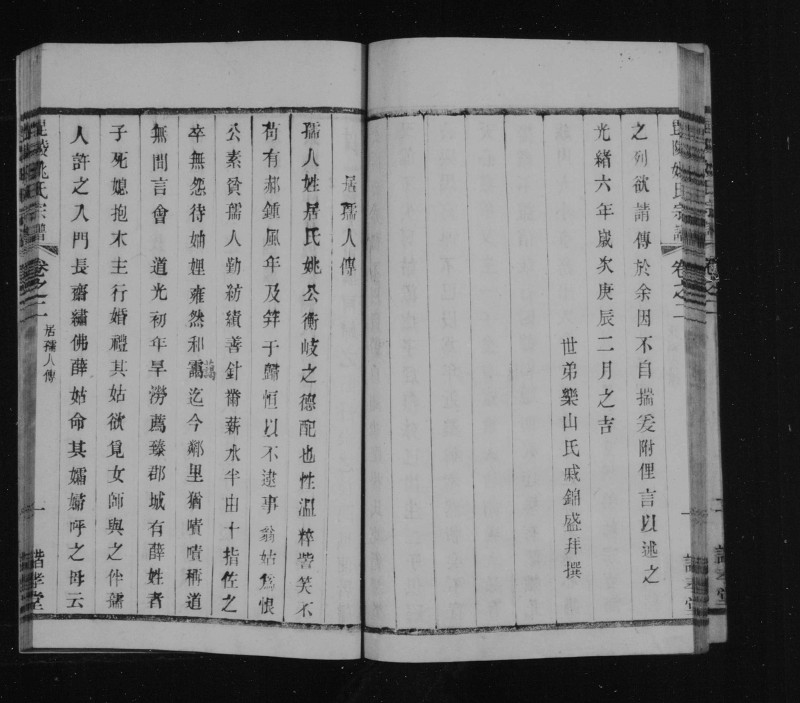 毘陵姚氏宗譜 卷之二
之列欲請傳於余因不自揣爰附俚言以述之
光緒六年歲次庚辰二月之吉
世弟樂山氏戚錦盛拜撰
居孺人傳
孺人姓居氏姚公衡岐之德配也性溫粹訾笑不
苟有郝鍾風年及笄于歸恒以不逮事翁姑爲恨
公素貧孺人勤紡績善針黹薪水半由十指佐之
卒無怨待妯娌雍然和藹迄今鄰里猶嘖嘖稱道
藹
無間言會 道光初年旱澇薦臻郡城有薛姓者
子死媳抱木主行婚禮其姑欲覓女師與之伴孺
人許之入門長齋繡佛薛姑命其孀婦呼之母云
毘陵姚氏宗譜 卷之二
居孺人傳
一
諧孝堂